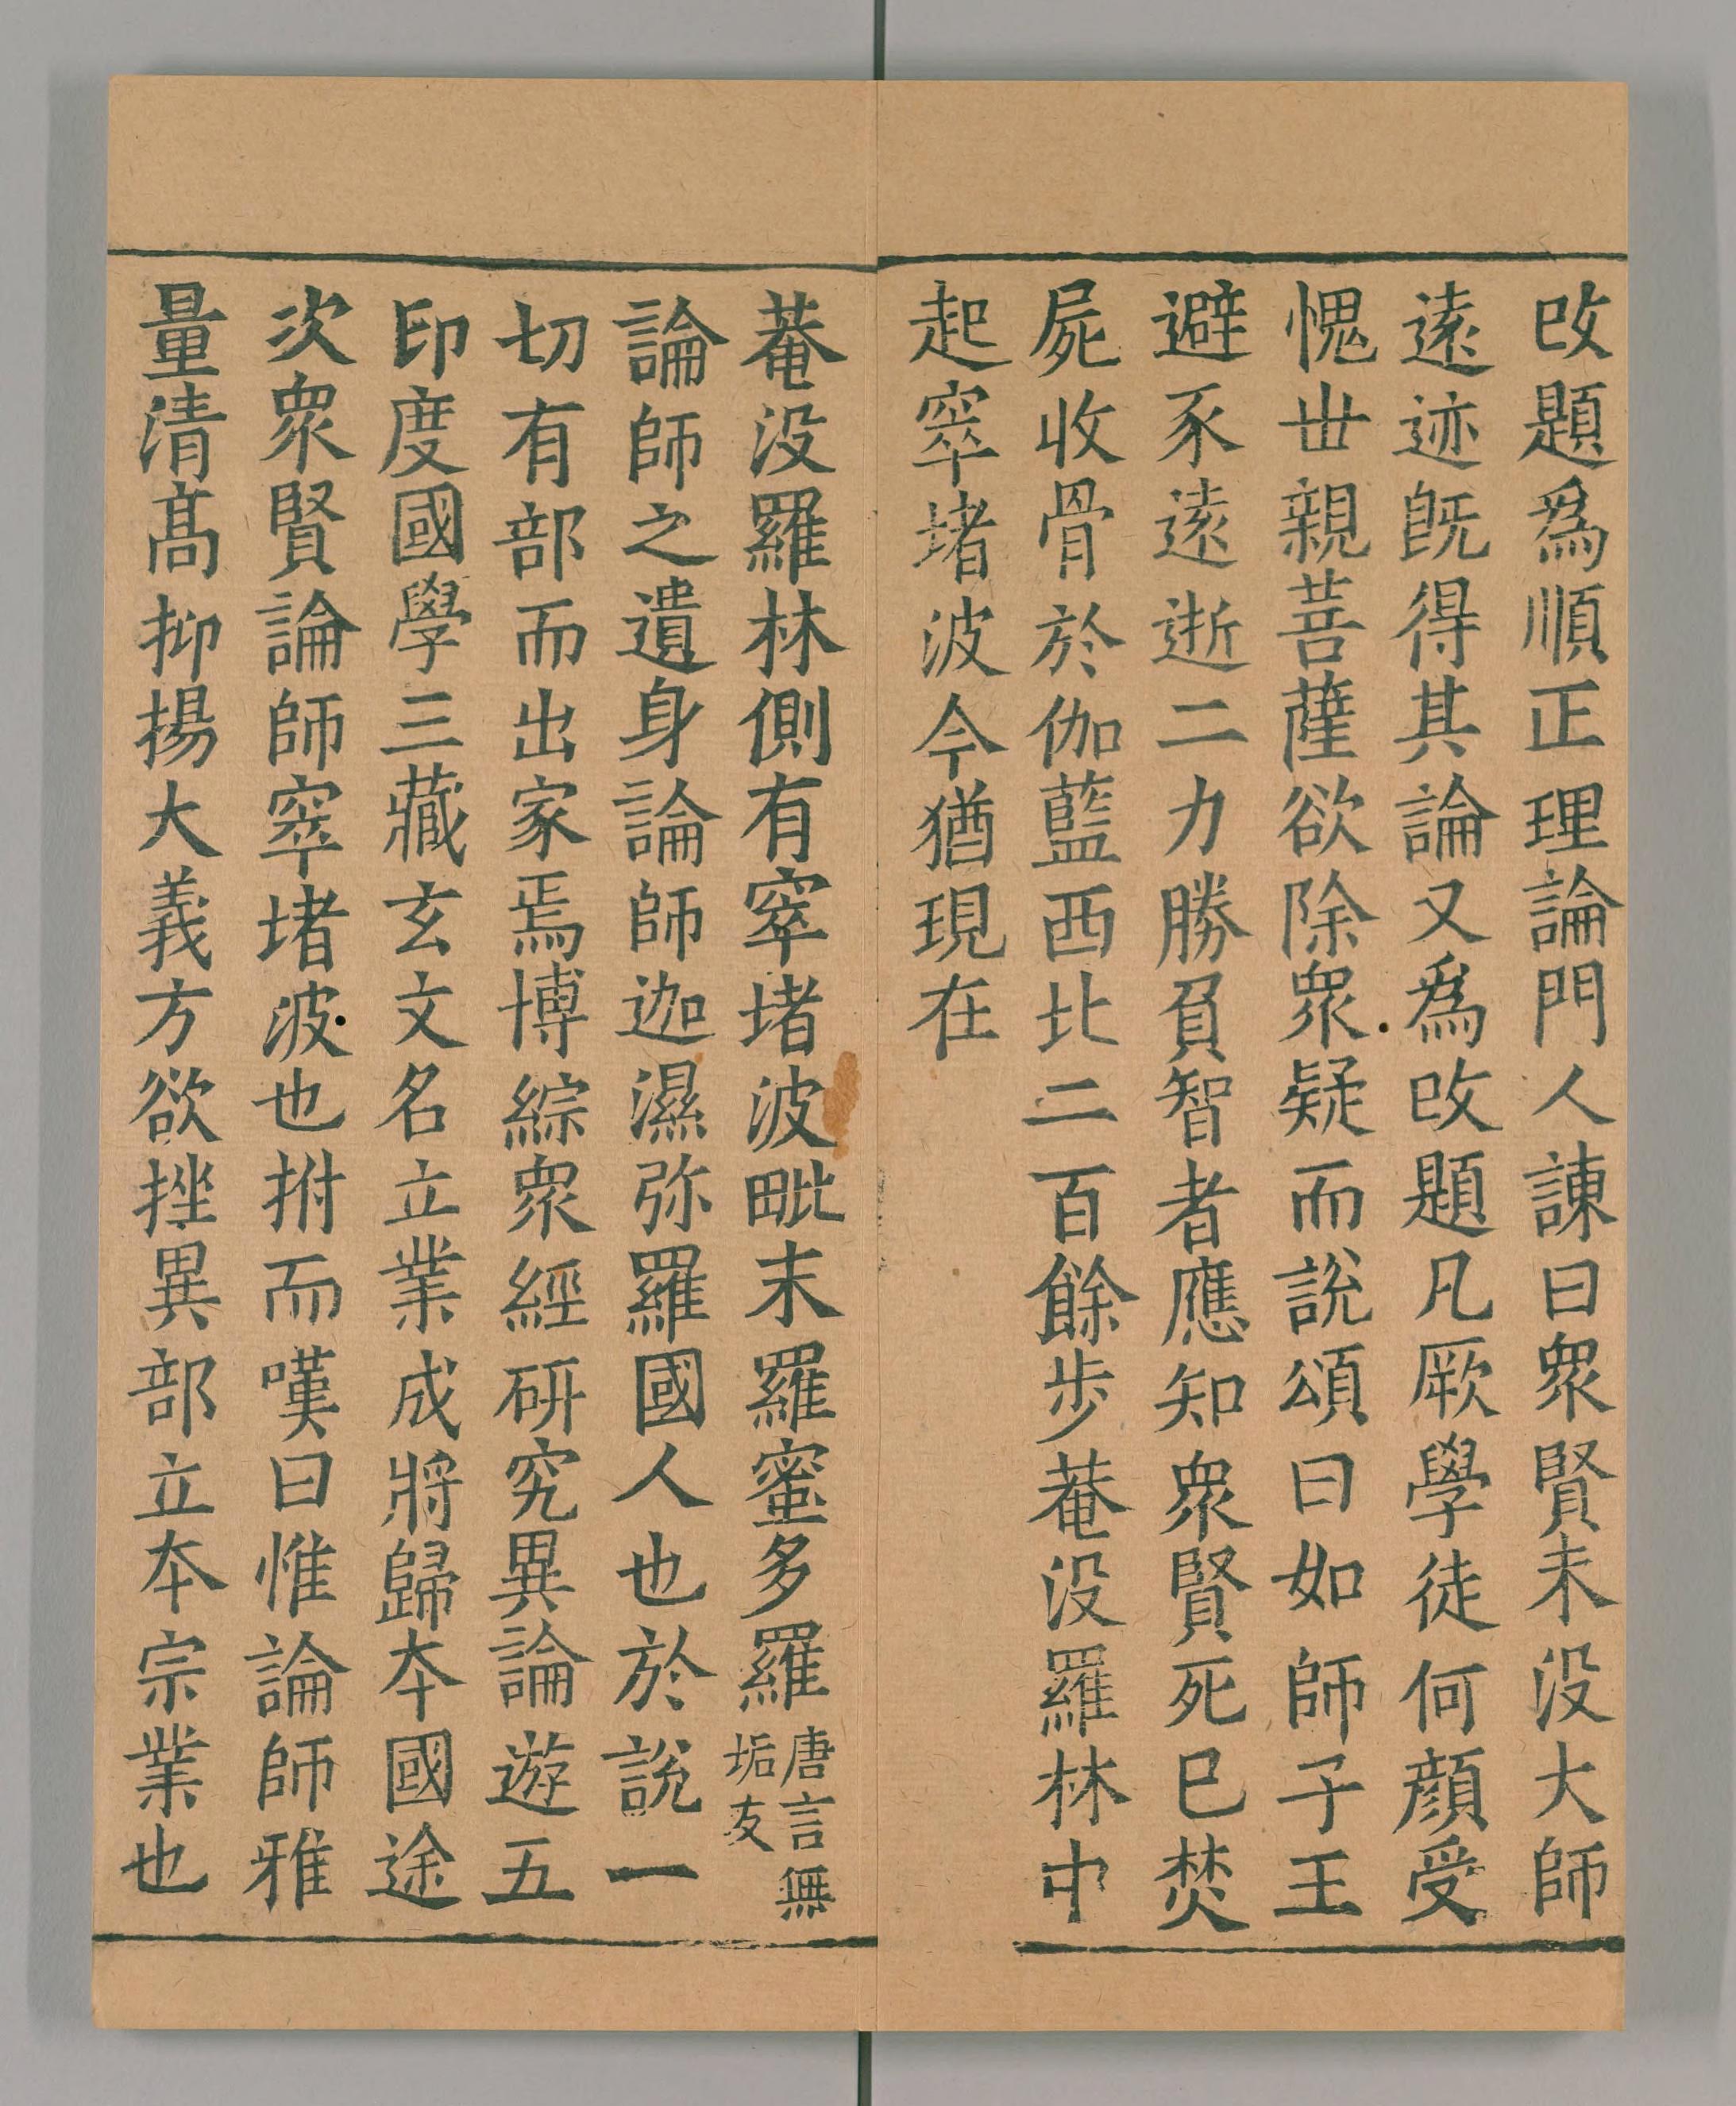 改題爲順正理論門人諌曰衆賢未没大師
逺迹旣得其論又爲改題凡厥學徒何顔受
愧丗親菩薩欲除衆疑而說頌曰如師子王
避豕逺逝二力勝負智者應知衆賢死已焚
屍收骨於伽藍西北二百餘步菴没羅林中
起窣堵波今猶現在
菴没羅林側有窣堵波毗末羅蜜多羅唐言無垢友
論師之遺身論師迦濕弥羅國人也於說一
切有部而出家焉博綜衆經研究異論遊五
印度國學三藏玄文名立業成將歸本國途
次衆賢論師窣堵波也拊而嘆曰惟論師雅
量清髙抑揚大義方欲挫異部立本宗業也